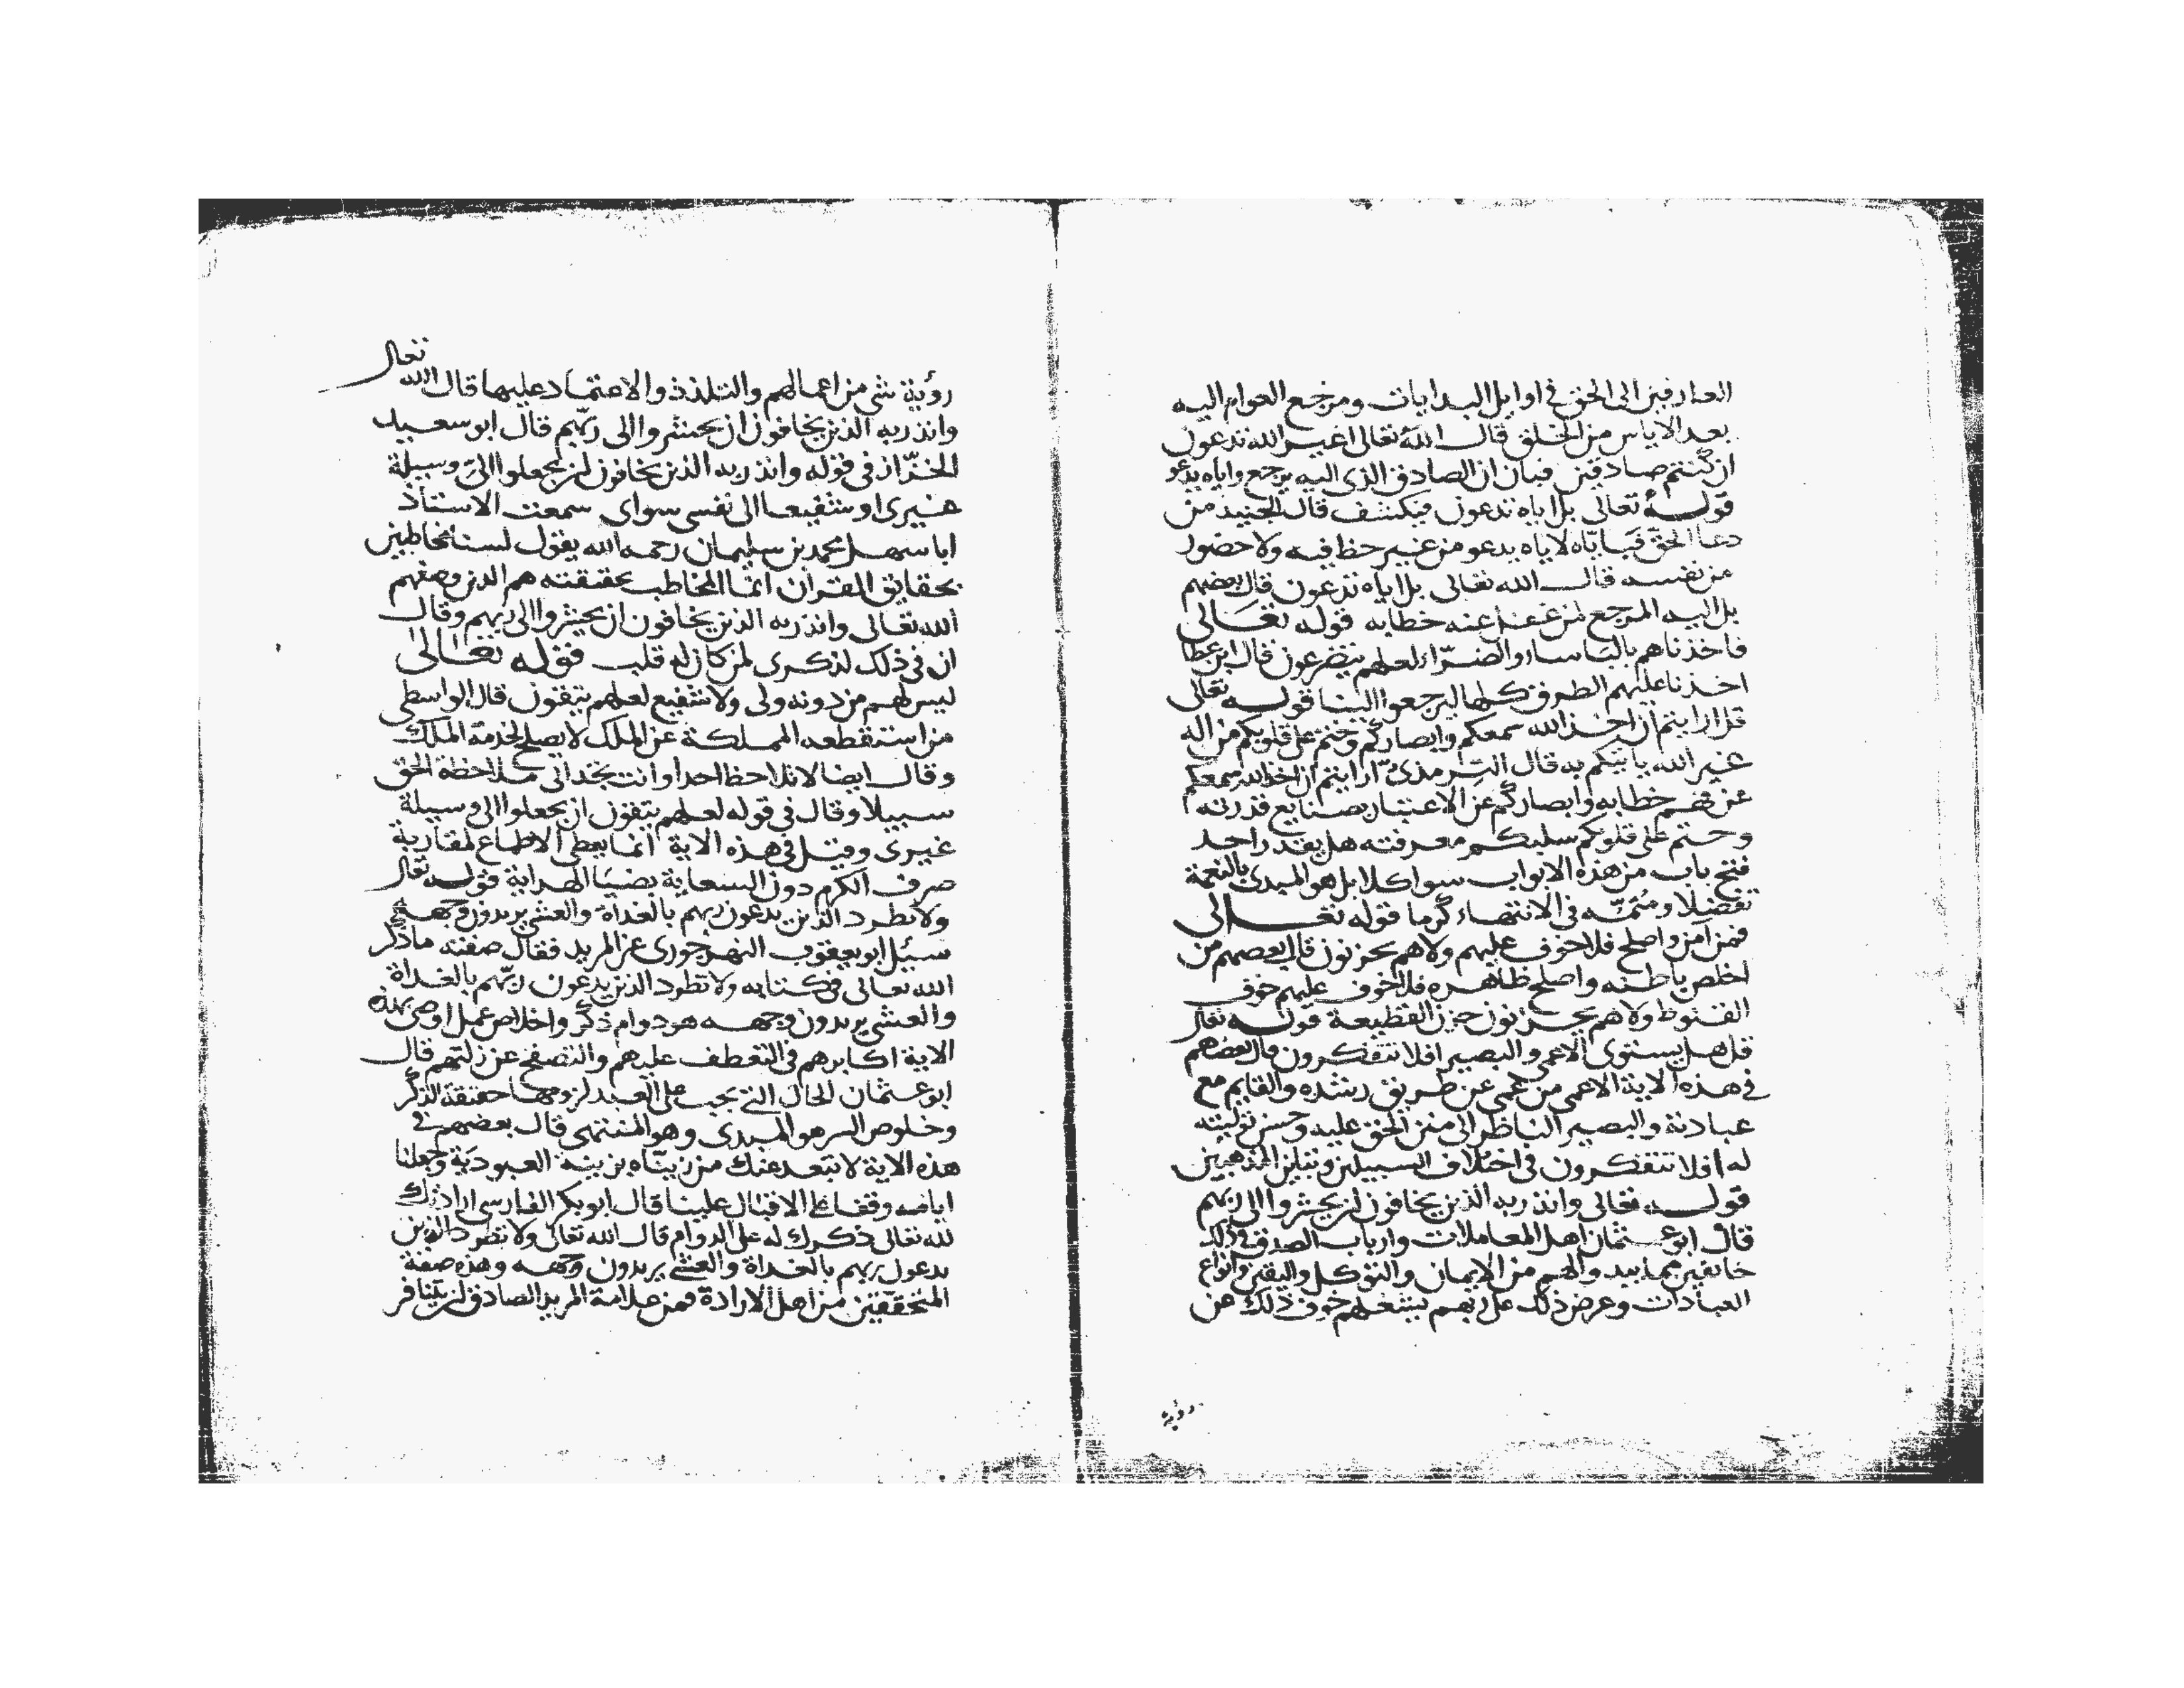 العارفين الى الحق فى اوايل البدايات ومرجع العوام اليه
بعد الاياس من الخلق قال الله تعالى اغير الله تدعون
ان كنتم صادقين فبان ان الصادق الذى اليه يرجع واياه يدعو
قوله تعالى بل اياه تدعون فيكشف قال الجنيد من
دعا الحق فباياه لاياه يدعو من غير حظ فيه ولا حضور
من نفسه قال الله تعالى بل اياه تدعون قال بعضهم
بل اليه المرجع لمن غفل عنه خطابه قوله تعالى
فاخذناهم بالباساء والضراء لعلهم يتضرعون قال ابن عطا
اخذنا عليهم الطرق كلها ليرجعوا الينا قوله تعالى
قل ارايتم ان اخذ الله سمعكم وابصاركم وختم على قلوبكم من اله
غير الله ياتيكم به قال الترمذى ارايتم ان اخذ الله سمعكم
عن فهم خطابه وابصاركم عن الاعتبار بصنايع قدرته
وختم على قلوبكم سلبكم معرفته هل يقدر احد
فتح باب من هذه الابواب سواه كلا بل هو المبدى بالنعمة
تفضلا ومتمه فى الانتهاء كرما قوله تعالى
فمن امن واصلح فلا خوف عليهم ولا هم يحزنون قال بعضهم من
اخلص باطنه واصلح ظاهره فلا خوف عليهم خوف
القنوط ولا هم يحزنون حزن القطيعة قوله تعالى
قل هل يستوى الاعمى والبصير افلا تتفكرون قال بعضهم
فى هذه الاية الاعمى من عمى عن طريق رشده والقايم مع
عبادته والبصير الناظر الى منن الحق عليه وحسن توليته
له افلا تتفكرون فى اختلاف السبيلين وتباين المذهبين
قوله تعالى وانذر به الذين يخافون ان يحشروا الى ربهم
قال ابو عثمان اهل المعاملات وارباب الصدق فى ذلك
خائفين مما بيد والهم من الايمان والتوكل واليقين وانواع
العبادات وعرض ذلك على ربهم يشغلهم خوف ذلك عن
رؤية
رؤية شى من اعمالهم والتلذذ والاعتماد عليها قال الله تعالى
وانذر به الذين يخافون ان يحشروا الى ربهم قال ابو سعيد
الخزاز فى قوله وانذر به الذين يخافون لن يجعلوا الى وسيلة
غيرى او شفيعا الى نفسى سواى سمعت الاستاذ
ابا سهل محمد بن سليمان رحمه الله يقول لسنا مخاطبين
بحقايق القران انما المخاطب بحقيقته هم الذين وصفهم
الله تعالى وانذر به الذين يخافون ان يحشروا الى ربهم وقال
ان فى ذلك لذكرى لمن كان له قلب قوله تعالى
ليس لهم من دونه ولى ولا شفيع لعلهم يتقون قال الواسطى
من استقطعه المملكة عن الملك لا يصلح لخدمة الملك
وقال ايضا لا تلاحظ احدا وانت تجد الى ملاحظة الحق
سبيلا وقال فى قوله لعلهم يتقون ان يجعلوا الى وسيلة
غيرى وقيل فى هذه الاية انما يعطى الاطماع لمقاربة
صرف الكرم دون السعاية بضيا الهداية قوله تعالى
ولا تطرد الذين يدعون ربهم بالغداة والعشى يريدون وجهه
سيل ابو يعقوب النهرجورى عن المريد فقال صفته ما ذكر
الله تعالى فى كتابه ولا تطرد الذين يدعون ربهم بالغداة
والعشى يريدون وجهه هو دوام ذكر واخلاص عمل اوصى بهذه
الاية اكابرهم فى التعطف عليهم والتصفح عن زلتهم قال
ابو عثمان الحال التى يجب على العبد لزومها حقيقة الذكر
وخلوص السر هو المبدى وهو المنتهى قال بعضهم فى
هذه الاية لا تبعد عنك من زيناه بزينة العبودية وجعلنا
ايامه وقفا على الاقبال علينا قال ابو بكر الفارسى ارادتك
لله تعالى ذكرك له على الدوام قال الله تعالى ولا تطرد الذين
يدعون ربهم بالغداة والعشى يريدون وجهه وهذه صفة
المتحققين من اهل الارادة فمن علامة المريد الصادق ان يتنافر